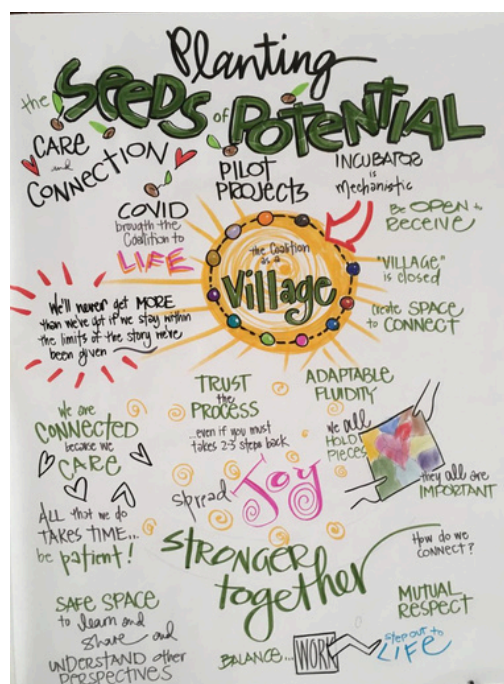 Planting
the SEEDS of POTENTIAL
CARE
and
CONNECTION
PILOT
PROJECTS
INCUBATOR
is
mechanistic
COVID
brougth the
Coalition to
LIFE
the Coalition
as a
Village
Be OPEN to
RECEIVE
"VILLAGE"
is closed
create SPACE
to CONNECT
We'll never get MORE
than we've got if we stay within
the limits of the story we've
been given
TRUST
the
PROCESS
...even if you must
takes 2-3 steps back
ADAPTABLE
FLUIDITY
we all
HOLD
PIECES
they all are
IMPORTANT
We are
CONNECTED
because we
CARE
spread Joy
ALL that we do
TAKES TIME...
be patient!
STRONGER
together
How do we
CONNECT?
MUTUAL
RESPECT
SAFE SPACE
to learn and
share and
UNDERSTAND other
PERSPECTIVES
BALANCE... WORK
step out to
LIFE